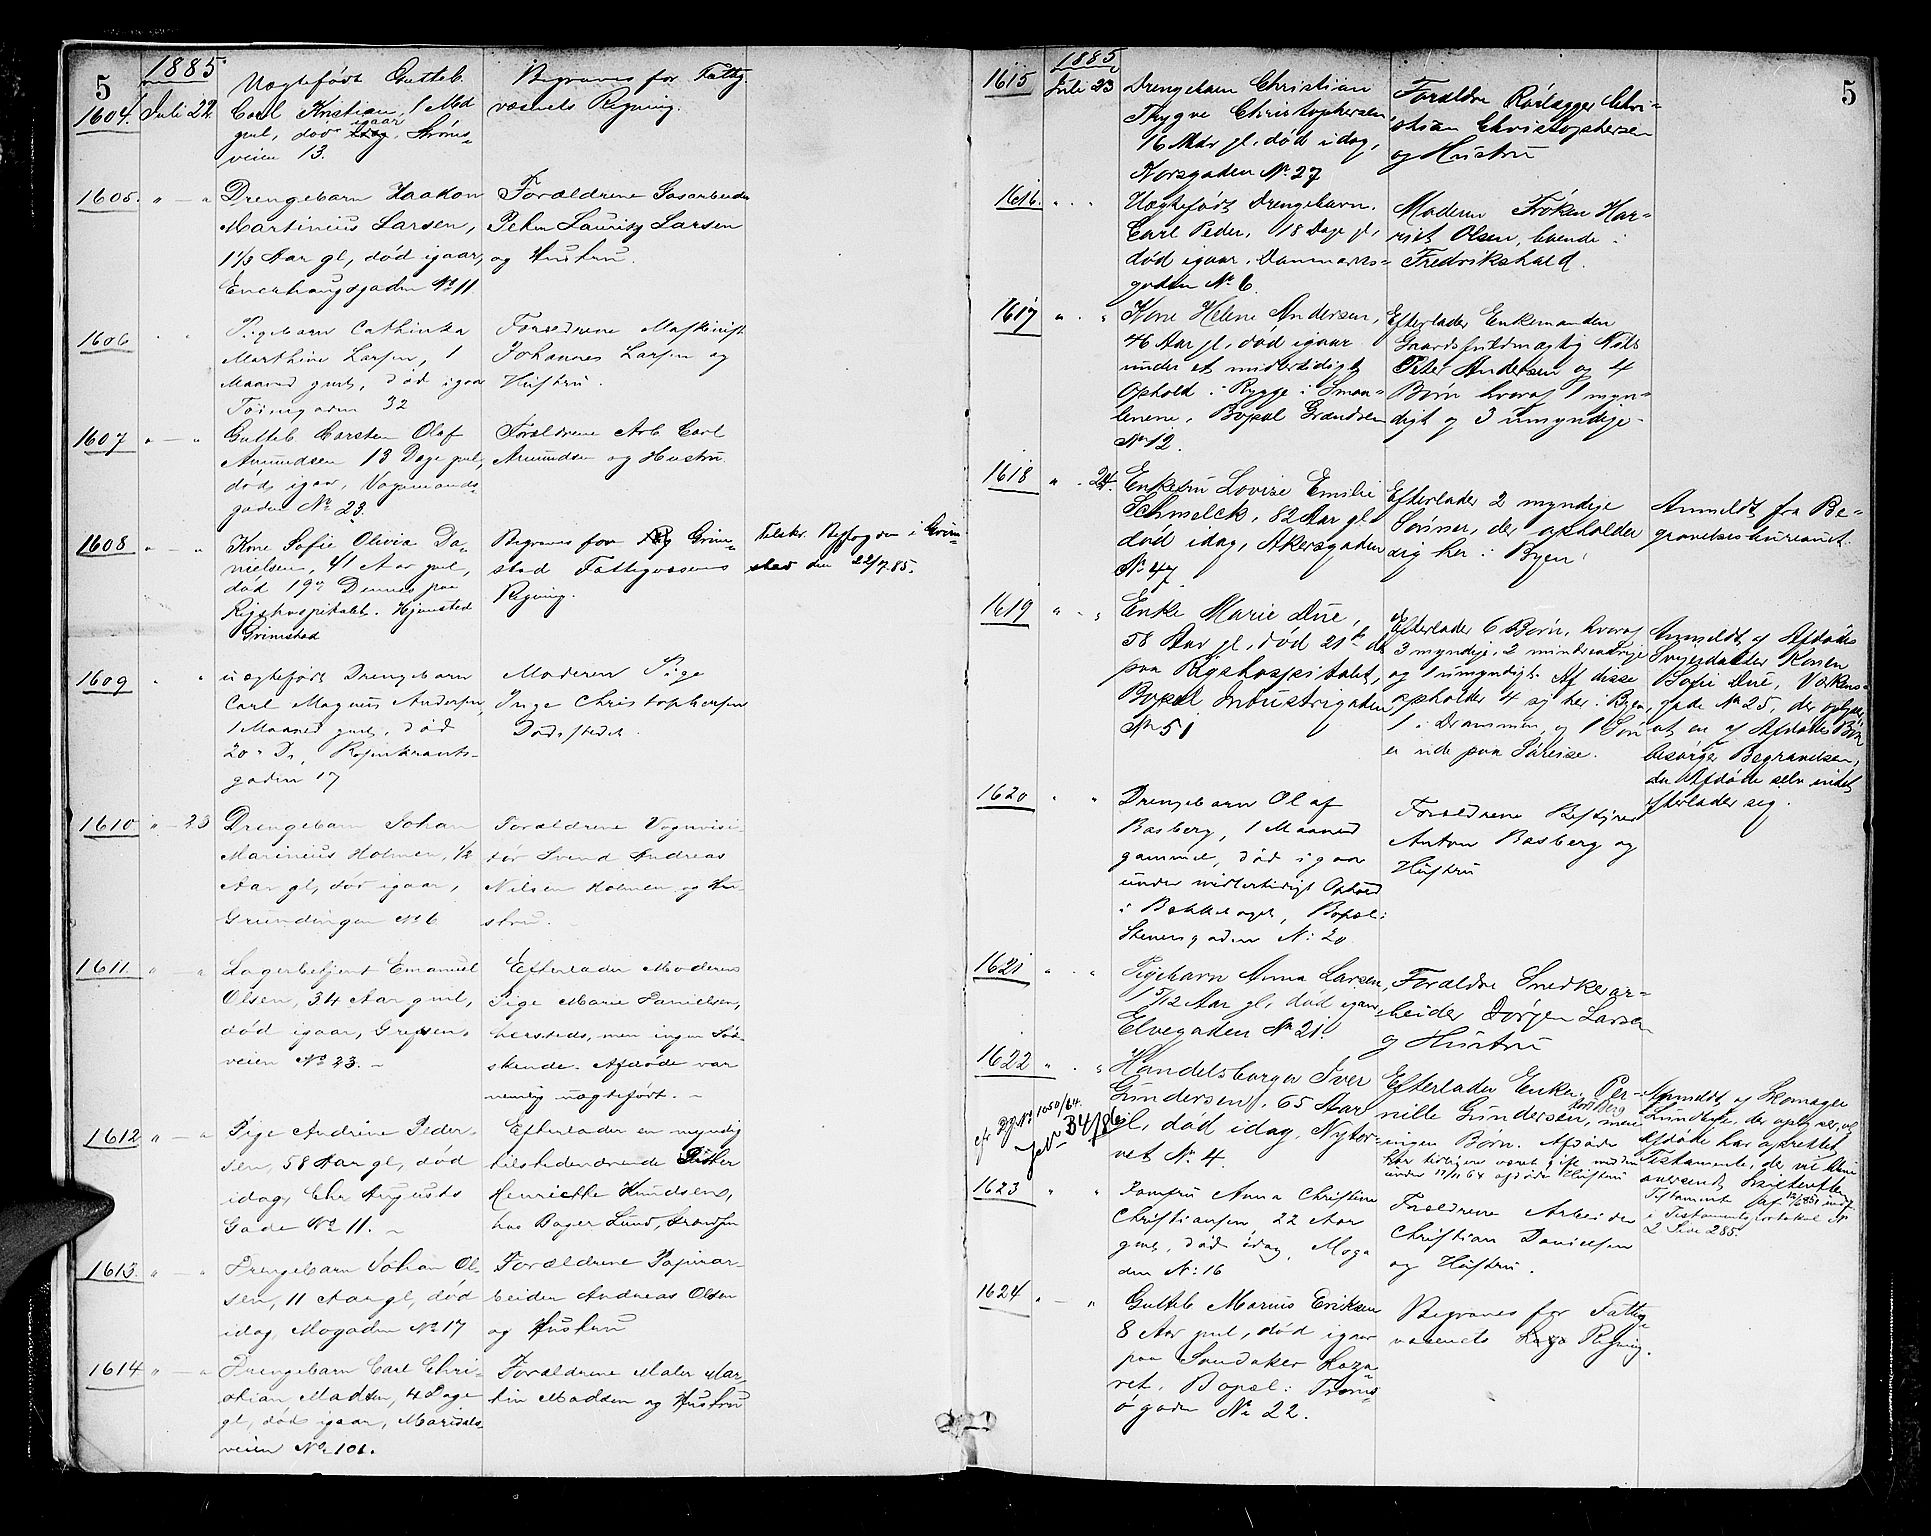 5
1885
1604. Juli 22.
Uægtefødt Gutteb.
Carl Kristian, 1 Md
gml, død igaar, Strøms-
veien 13.
Begraves for Fattig-
væsnets Regning.
1605. " — "
Drengebarn Haakon
Martinius Larsen,
1 1/3 Aar gl, død igaar,
Enerhaugsgaden No 11
Forældrene Gasarbeider
Peter Lauritz Larsen
og Hustru.
1606 " "
Pigebarn Cathinka
Marthine Larsen, 1
Maaned gml, død igaar
Tøiengaden 32
Forældrene Maskinist
Johannes Larsen og
Hustru.
1607 " — "
Gutteb Carsten Olaf
Amundsen 13 Dage gml,
død igaar, Vognmands-
gaden No 23.
Forældrene Arb. Carl
Amundsen og Hustru.
1608 " — "
Kone Sofie Olivia Da-
nielsen, 41 Aar gml,
død 19de Dennes paa
Rigshospitalet. Hjemsted
Grimstad
Begraves for Grim-
stad Fattigvæsens
Regning.
Telekr. Byfogden i Grim-
stad den 22/7 85.
1609 " "
uægtefødt Drengebarn
Carl Magnus Andersen,
1 Maaned gml, død
20de Ds, Rosenkrants-
gaden 17
Moderen Pige
Inge Christophersen
Dødsstedet.
1610 " — 23
Drengebarn Johan
Marinius Holmen, 1/2
Aar gl, død igaar,
Grundingen No 6
Forældrene Vognvisi-
tør Svend Andreas
Nilsen Holmen og Hu-
stru.
1611. " — "
Lagerbetjent Emanuel
Olsen, 34 Aar gml,
død igaar, Grefsen-
veien No 23. —
Efterlader Moderen
Pige Marie Danielsen,
hersteds, men ingen Sød-
skende. Afdøde var
nemlig uægtefødt. —
1612 " — "
Pige Andrine Peder-
sen, 58 Aar gl, død
idag, Chr Augusts
Gade No 11. —
Efterlader en myndig
tilstedeværende Datter
Henriette Knudsen,
hos Bager Lund,
1613. " — "
Drengebarn Johan Ol-
sen, 11 Aar gl, død
idag, Mogaden No 17
Forældrene Papirar-
beider Andreas Olsen
og Hustru
1614 " — "
Drengebarn Carl Chri-
stian Madsen, 4 Dage
gl, død igaar, Maridals-
veien No 101.
Forældrene Maler Mar-
tin Madsen og Hustru
5
1885
1615 Juli 23
Drengebarn Christian
Trygve Christophersen
16 Mdr gl, død idag,
Korsgaden No 27
Forældre Rørlægger Chri-
stian Christophersen
og Hustru
1616. " "
Uægtefødt Drengebarn.
Carl Peder, 18 Dage gl,
død igaar, Danmarks-
gaden No 6.
Moderen Frøken Har-
riet Olsen, boende i
Fredrikshald.
1617 " "
Kone Helene Andersen,
46 Aar gl, død igaar
under et midlertidigt
Ophold i Rygge i Smaa-
lenene, Bopæl Grændsen
No 12.
Efterlader Enkemanden
Gaardsfuldmægtig Nils
Peter Andersen og 4
Børn hvoraf 1 myn-
digt og 3 umyndige.
1618 " 24.
Enkefru Lovise Emilie
Schmelck, 82 Aar gl
død idag, Akersgaden
No 47.
Efterlader 2 myndige
Sønner, der opholder
sig her i Byen.
Anmeldt fra Be-
gravelsesbureauet.
1619 " "
Enke Marie Due,
58 Aar gl, død 21de ds
paa Rigshospitalet,
Bopæl Industrigaden
No 51
Efterlader 6 Børn, hvoraf
3 myndige, 2 mindreaarige
og 1 umyndigt. Af disse
opholder 4 sig her i Byen,
1 i Drammen, og 1 Søn
er ude paa Søreise.
Anmeldt af Afdødes
Svigerdatter Konen
Sofie Due,
gade No 25, der oplyser,
at en af Afdødes Børn
besørger Begravelsen,
da Afdøde selv intet
efterlader sig.
1620 " "
Drengebarn Olaf
Basberg, 1 Maaned
gammel, død igaar
under midlertidigt Ophold
i Bækkelaget, Bopæl:
Stenersgaden No 20
Forældrene Bestyrer
Anton Basberg og
Hustru
1621 " "
Pigebarn Anna Larsen,
1 5/12 Aar gl, død igaar,
Elvegaden No 21.
Forældre Snedkerar-
beider Jørgen Larsen
og Hustru
1622 " "
cfr No 1050/64.
Handelsborger Iver
Gundersen, 65 Aar
gl, død idag, Nytor-
vet No 4.
Efterlader Enken Per-
nille Gundersen, men
ingen Børn. Afdøde
har tidligere været gift med den
under 17/11 64 afdøde Hustru
Anmeldt af Skomager
Lundteie, der oplyser, at
Afdøde har oprettet
Testamente, der vil blive
oversendt Skifteretten.
Testament
i Testamentsprotokol No
2 Side 285.
1623 " "
Jomfru Anna Christine
Christiansen, 22 Aar
gml, død idag, Moga
den No 16
Forældrene Arbeider
Christian Danielsen
og Hustru.
1624 " — "
Gutteb Marius Eriksen
8 Aar gml, død igaar
paa Sandaker Laza-
ret. Bopæl: Troms-
øgaden No 22.
Begraves for Fattig-
væsenets Regning.